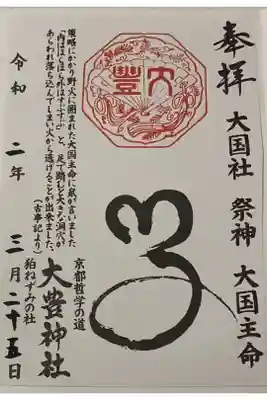 奉拝
大国社 祭神 大国主命
大豐
策略にかかり野火に囲まれた大国主命に鼠が言いました
「内はほらほら外はすぶすぶ」と、足で踏むと大きな洞穴が
あらわれ落ち込んでしまい火から逃げることが出来ました。
(古事記より)
京都哲学の道
大豊神社
狛ねずみの社
令和 二年 三月二十五日